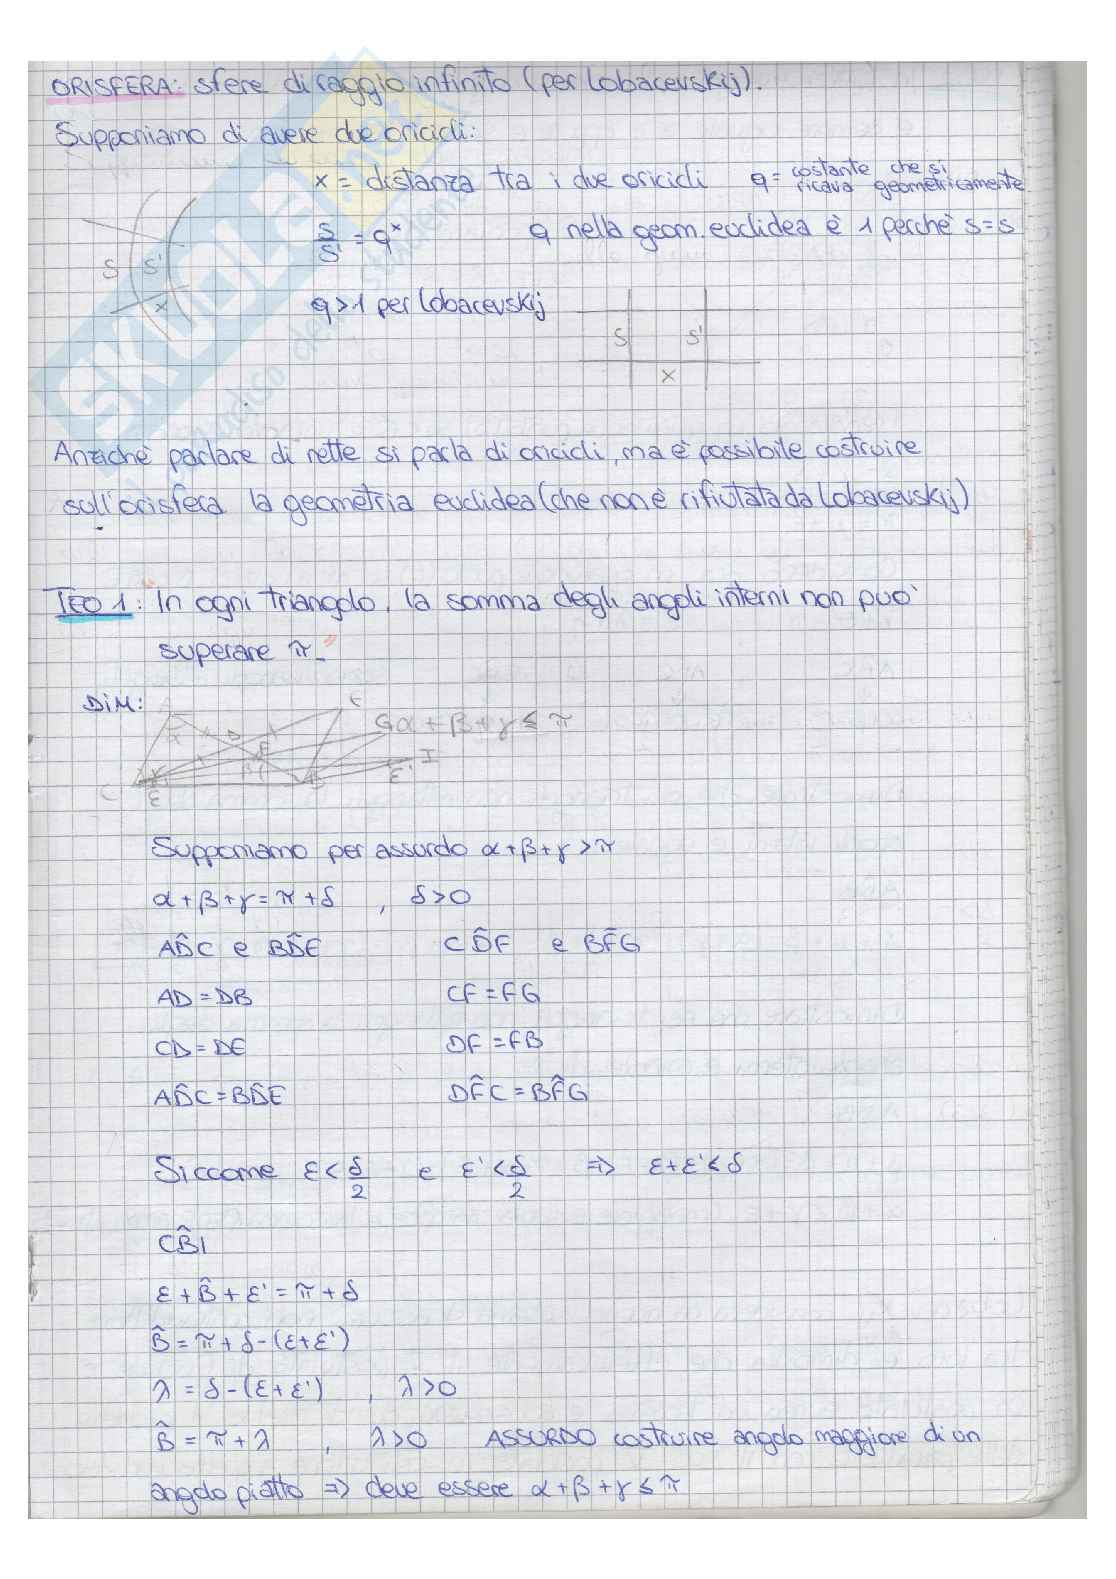 ORISFERA: sfere di raggio infinito (per Lobacevskij).
Supponiamo di avere due oricicli:
x = distanza tra i due oricicli q = costante che si
ricava geometricamente
S/S' = q^x q nella geom. euclidea è 1 perchè s=s
S S' x
q>1 per Lobacevskij
S S'
x
Anzichè parlare di rette si parla di oricicli, ma è possibile costruire
sull'orisfera la geometria euclidea (che non è rifiutata da Lobacevskij)
TEO 1: "In ogni triangolo, la somma degli angoli interni non può
superare π."
DIM:
α+β+γ ≤ π
Supponiamo per assurdo α+β+γ>π
α+β+γ=π+δ , δ>0
AD̂C e BD̂E CD̂F e BF̂G
AD=DB CF=FG
CD=DE DF=FB
AD̂C=BD̂E DF̂C=BF̂G
Siccome ε<δ/2 e ε'<δ/2 => ε+ε'<δ
CB̂I
ε+B̂+ε'=π+δ
B̂=π+δ-(ε+ε')
λ=δ-(ε+ε') , λ>0
B̂=π+λ , λ>0 ASSURDO costruire angolo maggiore di un
angolo piatto => deve essere α+β+γ≤π